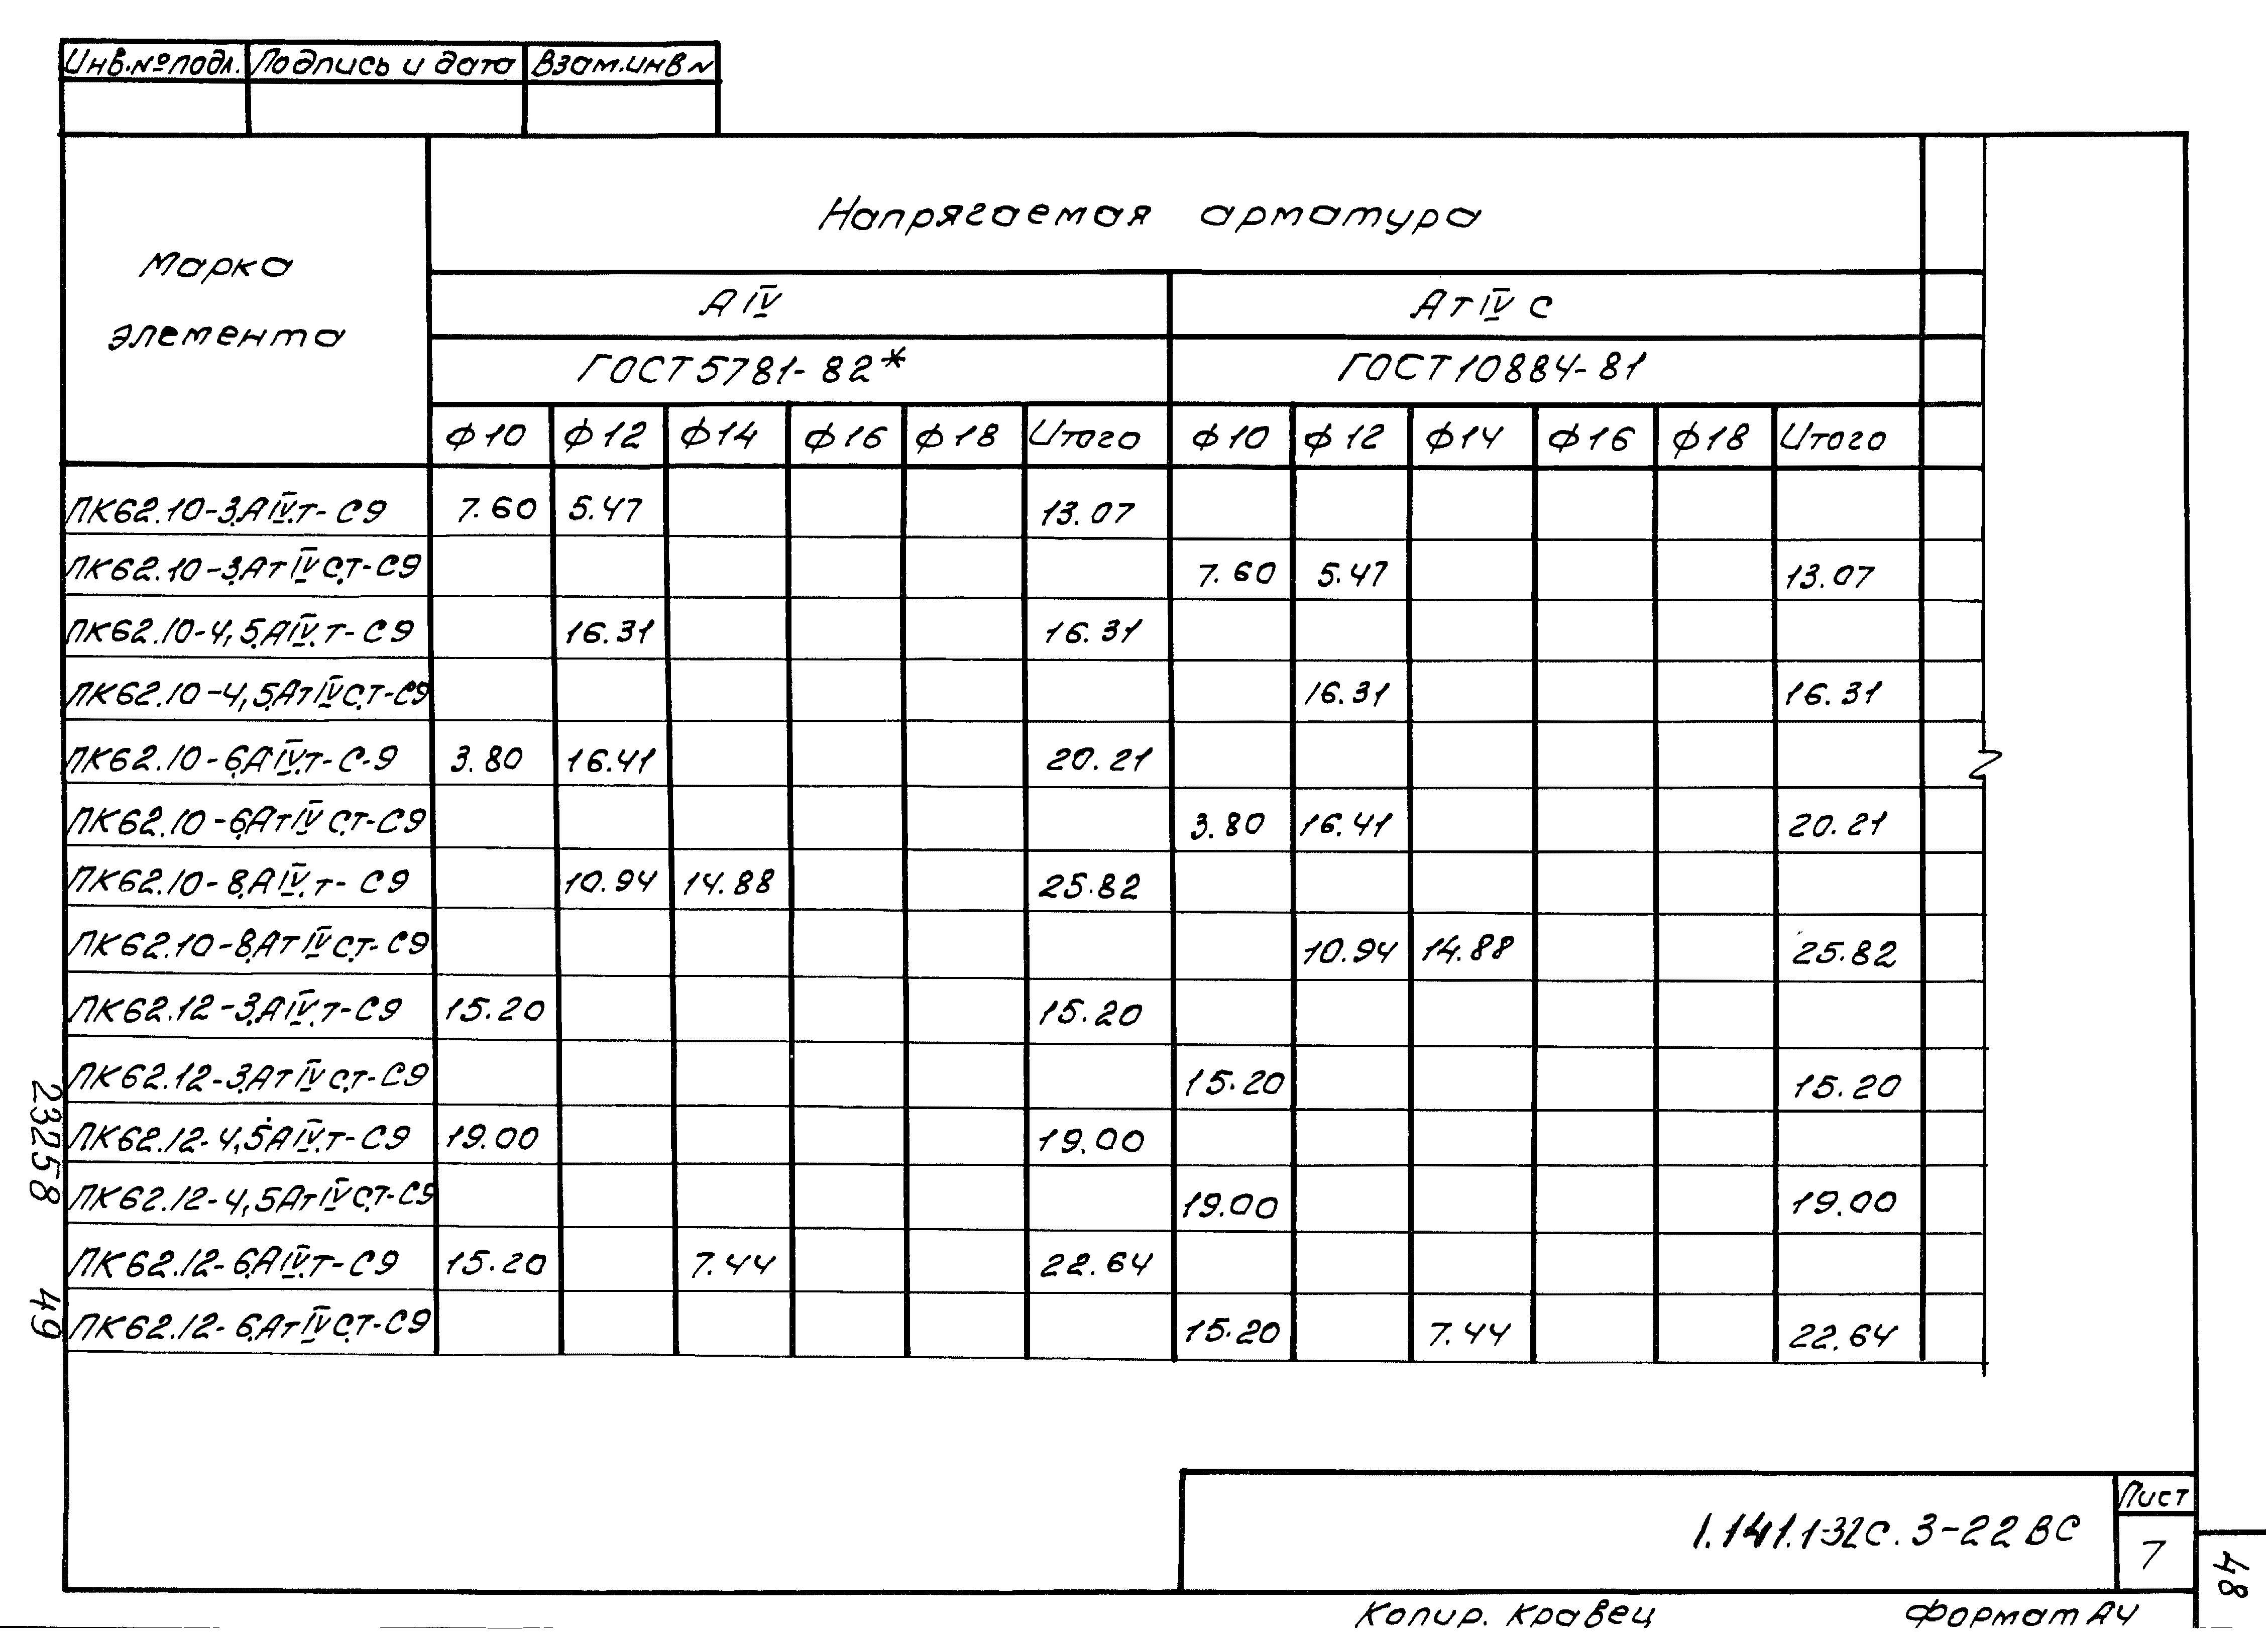 Инв.№подл. Подпись и дата Взам.инв №
Марка элемента
Напрягаемая арматура
АIV АтIVС
ГОСТ5781-82* ГОСТ10884-81
ф10 ф12 ф14 ф16 ф18 Итого ф10 ф12 ф14 ф16 ф18 Итого
ПК62.10-3,АIV.т-С9 7.60 5.47 13.07
ПК62.10-3,АтIVС.т-С9 7.60 5.47 13.07
ПК62.10-4,5,АIV.т-С9 16.31 16.31
ПК62.10-4,5АтIVС.т-С9 16.31 16.31
ПК62.10-6,АIV.т-С-9 3.80 16.41 20.21
ПК62.10-6,АтIVС.т-С9 3.80 16.41 20.21
ПК62.10-8,АIV.т-С9 10.94 14.88 25.82
ПК62.10-8,АтIVС.т-С9 10.94 14.88 25.82
ПК62.12-3,АIV.т-С9 15.20 15.20
ПК62.12-3,АтIVС.т-С9 15.20 15.20
ПК62.12-4,5АIV.т-С9 19.00 19.00
ПК62.12-4,5АтIVС.т-С9 19.00 19.00
ПК62.12-6,АIV.т-С9 15.20 7.44 22.64
ПК62.12-6,АтIVС.т-С9 15.20 7.44 22.64
23258 49
1.141.1-32С.3-22ВС
Лист
7
48
Копир. Кравец Формат А4